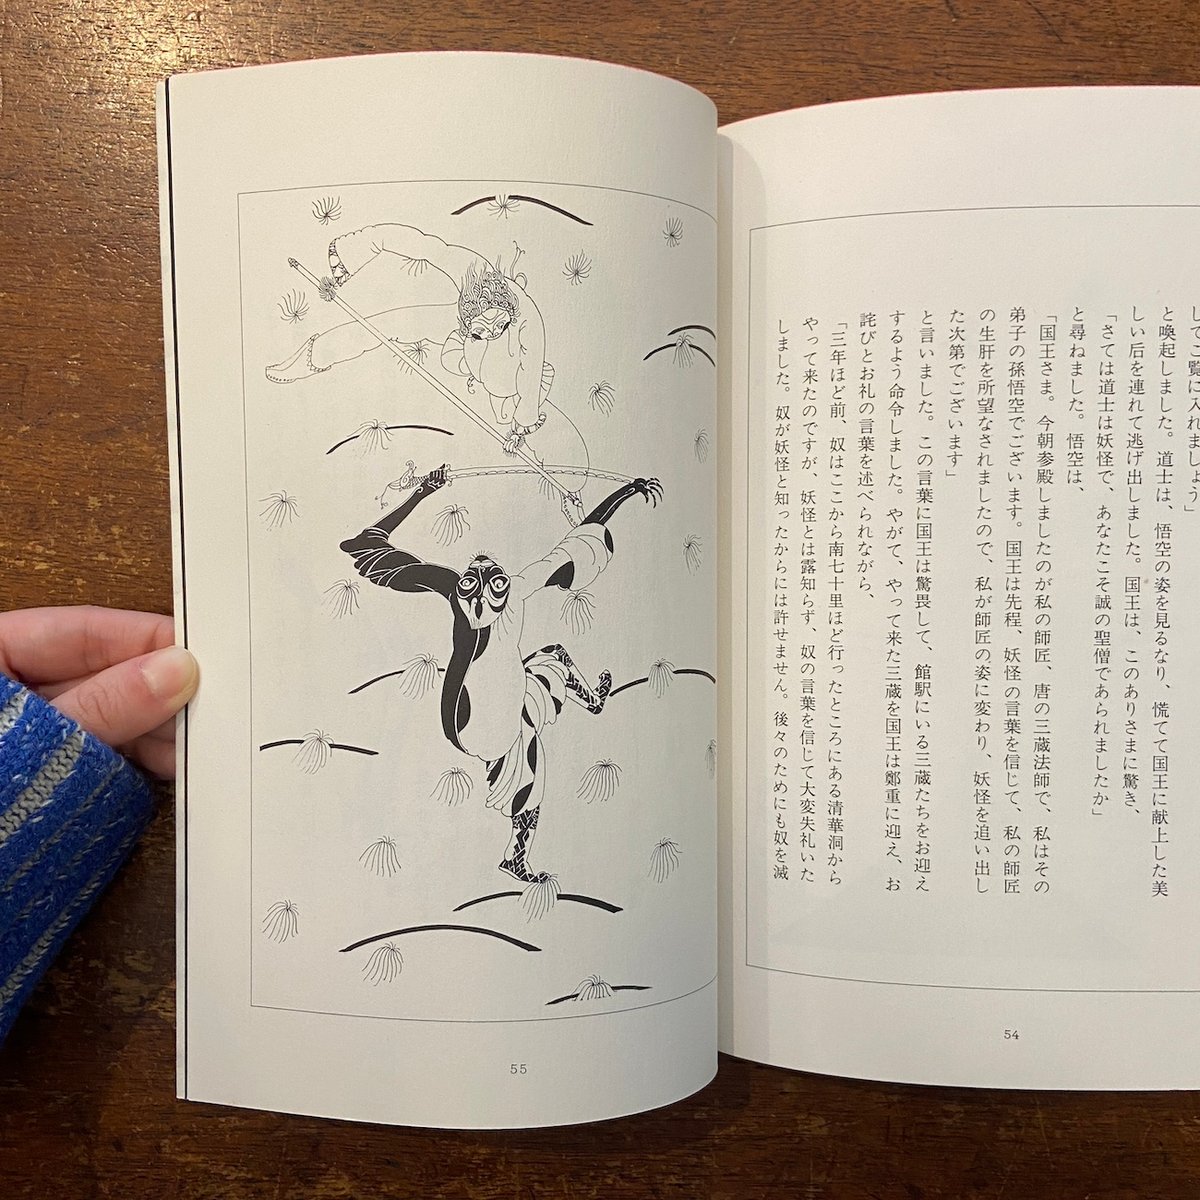 してご覧に入れましょう」
と喚起しました。道士は、悟空の姿を見るなり、慌てて国王に献上した美
しい后を連れて逃げ出しました。国王は、このありさまに驚き、
「さては道士は妖怪で、あなたこそ誠の聖僧であられましたか」
と尋ねました。悟空は、
「国王さま。今朝参殿しましたのが私の師匠、唐の三蔵法師で、私はその
弟子の孫悟空でございます。国王は先程、妖怪の言葉を信じて、私の師匠
の生肝を所望なされましたので、私が師匠の姿に変わり、妖怪を追い出し
た次第でございます」
と言いました。この言葉に国王は驚畏して、館駅にいる三蔵たちをお迎え
するよう命令しました。やがて、やって来た三蔵を国王は鄭重に迎え、お
詫びとお礼の言葉を述べられながら、
「三年ほど前、奴はここから南七十里ほど行ったところにある清華洞から
やって来たのですが、妖怪とは露知らず、奴の言葉を信じて大変失礼いた
しました。奴が妖怪と知ったからには許せません。後々のためにも奴を滅
54
55